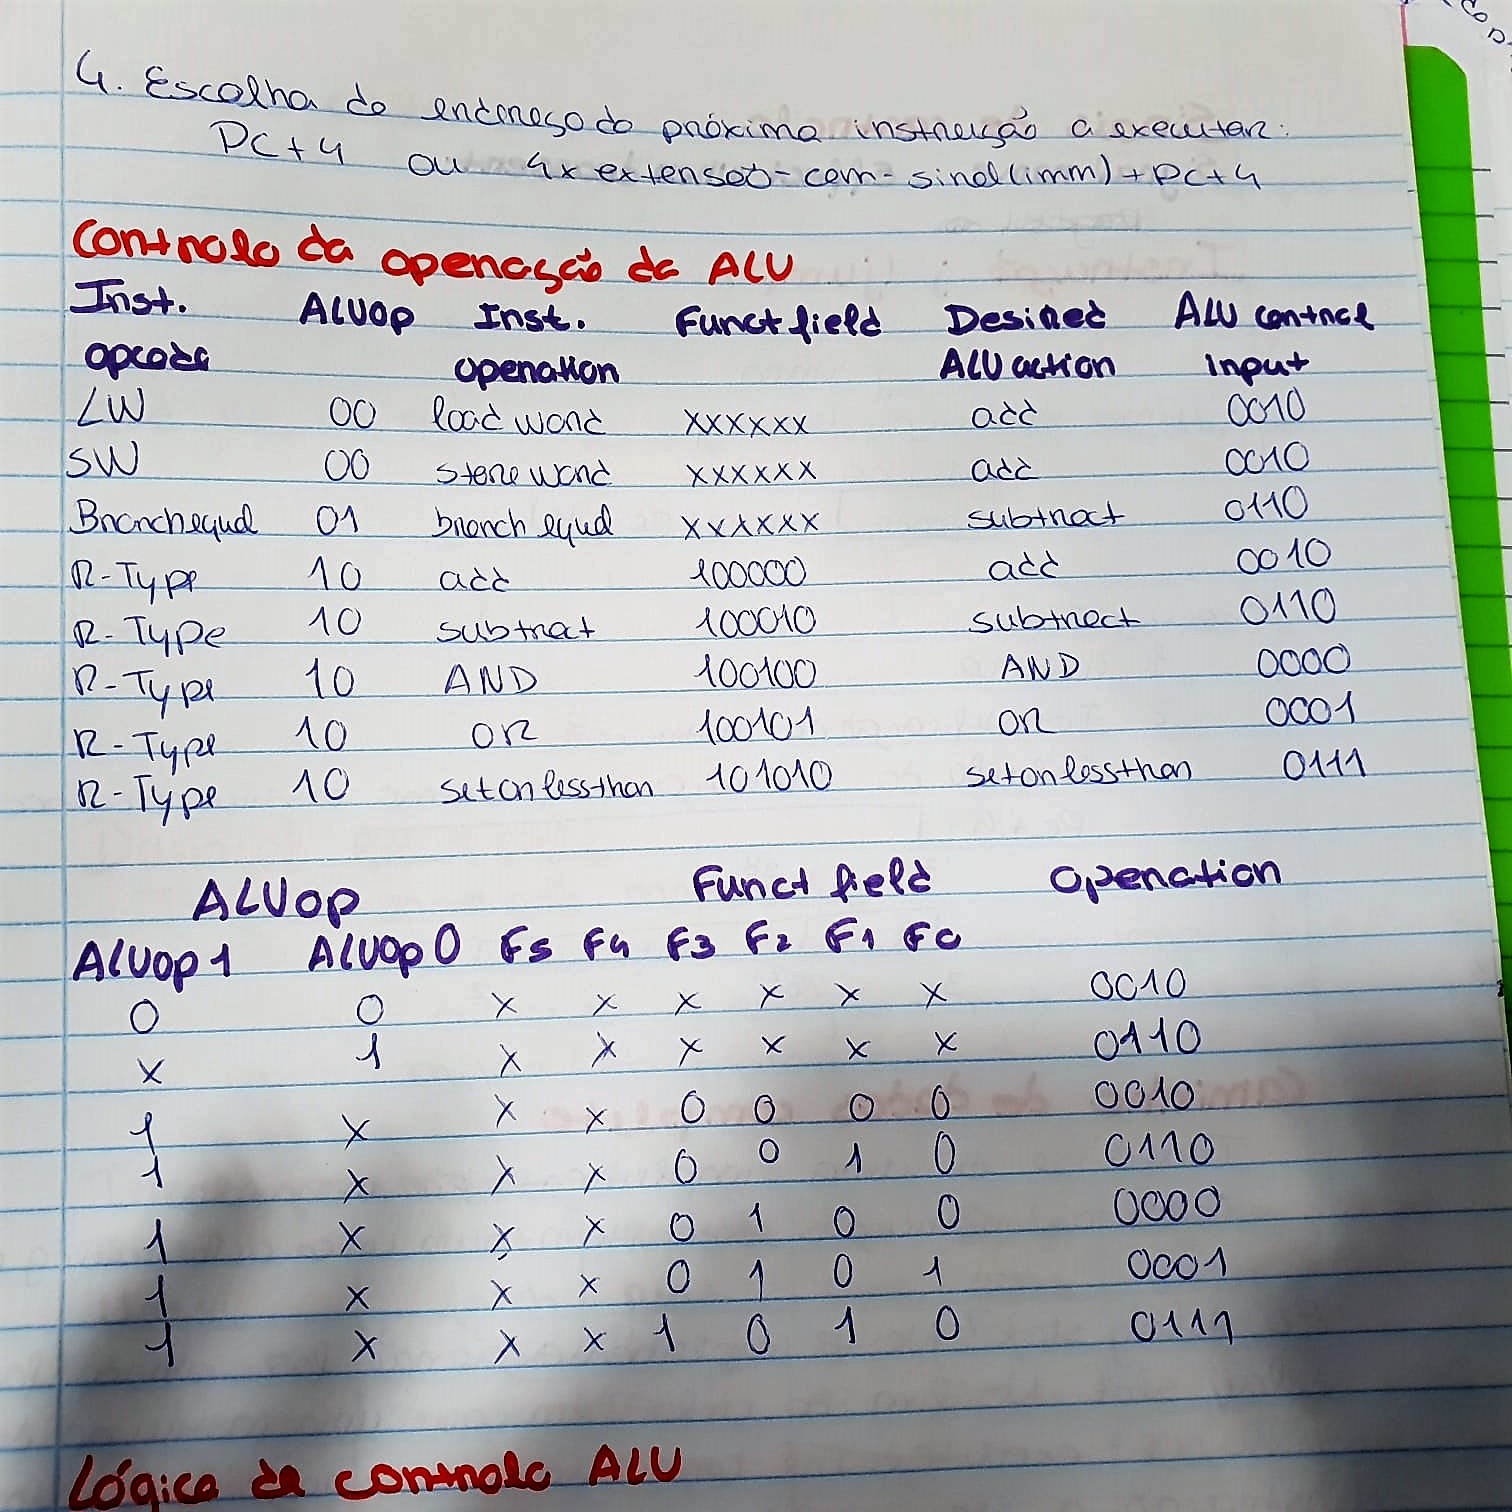 4. Escolha do endereço da próxima instrução a executar:
PC+4 ou 4x extensão-com-sinal(imm)+PC+4
Controlo da operação da ALU
Inst. ALUOp Inst. Funct field Desired ALU control
opcode operation ALU action input
LW 00 load word xxxxxx add 0010
SW 00 store word xxxxxx add 0010
Branch equal 01 branch equal xxxxxx subtract 0110
R-Type 10 add 100000 add 0010
R-Type 10 subtract 100010 subtract 0110
R-Type 10 AND 100100 AND 0000
R-Type 10 OR 100101 OR 0001
R-Type 10 set on less than 101010 set on less than 0111
ALUOp Funct field Operation
ALUOp1 ALUOp0 F5 F4 F3 F2 F1 F0
0 0 x x x x x x 0010
x 1 x x x x x x 0110
1 x x x 0 0 0 0 0010
1 x x x 0 0 1 0 0110
1 x x x 0 1 0 0 0000
1 x x x 0 1 0 1 0001
1 x x x 1 0 1 0 0111
Lógica de controlo ALU